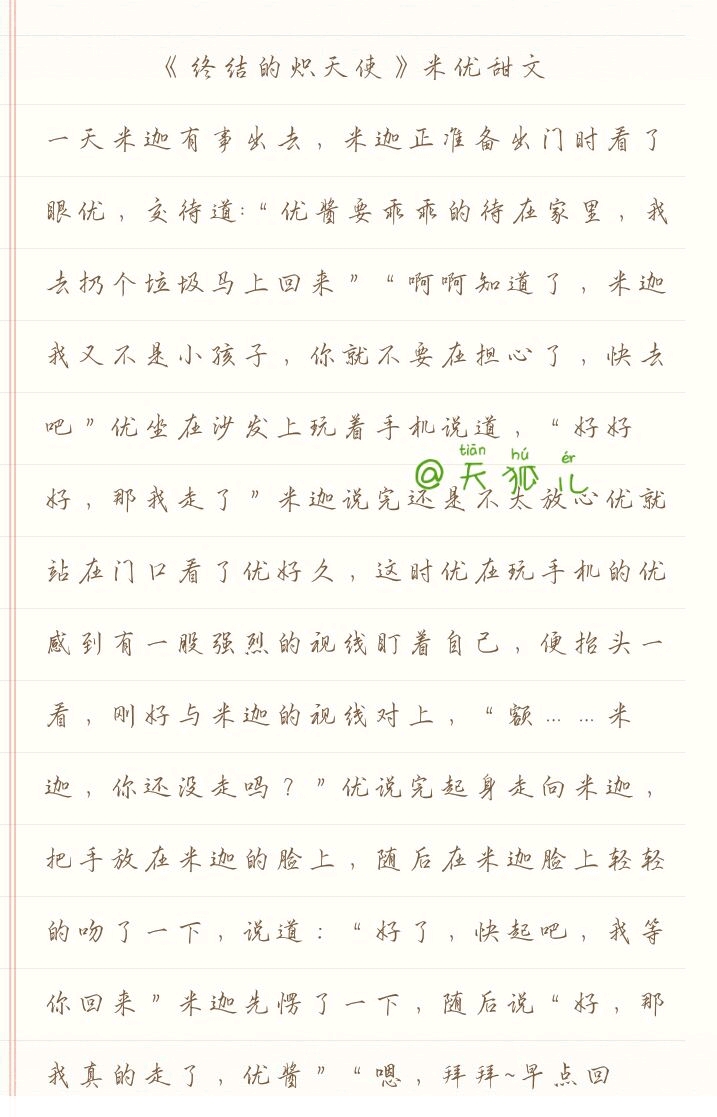 《终结的炽天使》米优甜文
一天米迦有事出去，米迦正准备出门时看了
眼优，交待道:“优酱要乖乖的待在家里，我
去扔个垃圾马上回来”“啊啊知道了，米迦
我又不是小孩子，你就不要在担心了，快去
吧”优坐在沙发上玩着手机说道，“好好
tiān hú ér
@天狐儿
好，那我走了”米迦说完还是不太放心优就
站在门口看了优好久，这时优在玩手机的优
感到有一股强烈的视线盯着自己，便抬头一
看，刚好与米迦的视线对上，“额……米
迦，你还没走吗？”优说完起身走向米迦，
把手放在米迦的脸上，随后在米迦脸上轻轻
的吻了一下，说道：“好了，快起吧，我等
你回来”米迦先愣了一下，随后说“好，那
我真的走了，优酱”“嗯，拜拜~早点回